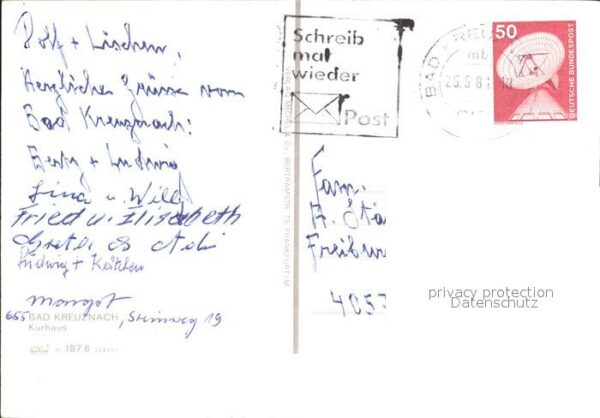 Rolf + Lieschen,
Herzliche Grüsse vom
Bad Kreuznach:
Hertz + Ludwig
Lina u. Willy
Fried u. Elisabeth
Greta & Adi
Ludwig + Kätchen
Margot
655 BAD KREUZNACH, Steinweg 19
Kurhaus
187.6
Schreib
mal
wieder
Post
BAD KREU
mb
25.5.8
50
DEUTSCHE BUNDESPOST
BERTRAMSTR. 73, FRANKFURT/M.
Fam.
Freibur
4053
privacy protection
Datenschutz